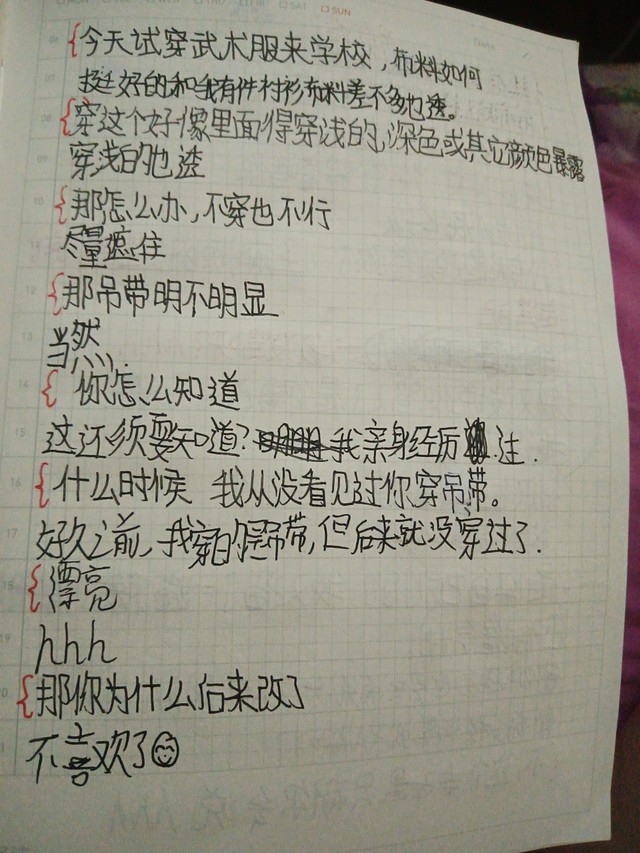 SAT SUN
今天试穿武术服来学校，布料如何
挺好的和我有件衬衫布料差不多也透。
穿这个好像里面得穿浅的，深色或其它颜色暴露
穿浅的也透
那怎么办，不穿也不行
尽量遮住
那吊带明不明显
当然
你怎么知道
这还须要知道？我亲身经历过.
什么时候 我从没看见过你穿吊带。
好久之前，我穿白的吊带，但后来就没穿过了.
漂亮
hhh
那你为什么后来改了
不喜欢了